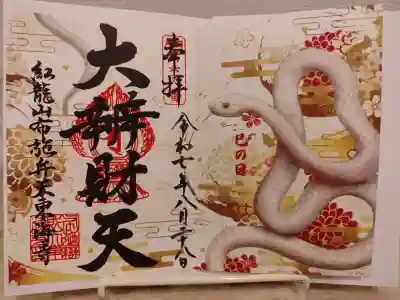 巳の日
奉拝
令和七年八月二八日
大辨財天
紅龍山布施弁天東海寺